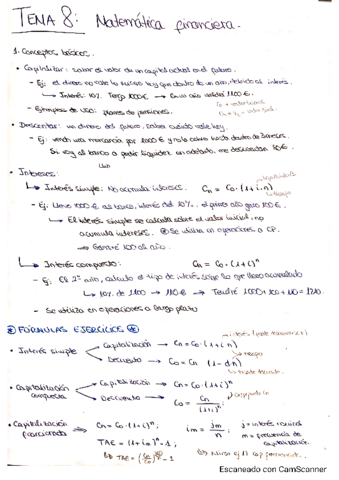 TEMA 8: Matemática financiera.
1. Conceptos básicos.
• Capitalizar: saber el valor de un capital actual en el futuro.
- Ej: el dinero no vale lo mismo hoy que dentro de un año, debido al interés.
↳ Interés: 10%. Tengo 1000€ → En un año valdrá 1100€.
- Ejemplos de uso: planes de pensiones.
• Descontar: un dinero del futuro, saber cuánto vale hoy.
- Ej: vendo una mercancía por 1000€ y no la cobro hasta dentro de 3 meses.
Si voy al banco a pedir liquidez por adelantado, me descuentan
• Intereses:
↳ Interés simple: No acumula intereses. Cn = Co·(1+i·n)
- Ej: Llevo 1000€ al banco, interés del 10%, el primer año gano 100€.
↳ El interés simple se calcula sobre el valor inicial, no
acumula intereses. Se utiliza en operaciones a CP.
100 al año.
↳ Interés compuesto: Cn = Co·(1+i)ⁿ
- Ej: El 2º año, calculo el tipo de interés sobre lo que llevo acumulado
↳ 10% de 1100 → 110€ → Tendré 1000+100+110 = 1210.
- Se utiliza en operaciones a largo plazo
FÓRMULAS EJERCICIOS
• Interés simple
Capitalización → Cn = Co·(1+i·n)
Descuento → Co = Cn (1-d·n)
• Capitalización compuesta
Capitalización → Cn = Co·(1+i)ⁿ
Descuento → Co = Cn / (1+i)ⁿ
• Capitalización fraccionada
Cn = Co·(1+i)ⁿ;
im = Jm / m
J = interés nominal
m = frecuencia de capitalización.
TAE = (1+im)ᵐ-1;
Escaneado con CamScanner